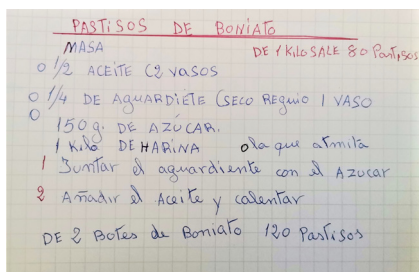 PASTISOS DE BONIATO
MASA DE 1 KILO SALE 80 PastisOS
O 1/2 ACEITE (2 VASOS
O 1/4 DE AGUARDIETE (SECO REQUIO 1 VASO
O 150 g. DE AZÚCAR.
1 Kilo DE HARINA o la que atmita
1 Juntar el aguardiente con el AZucar
2 Añadir el Aceite y calentar
DE 2 Botes de Boniato 120 PastisOS